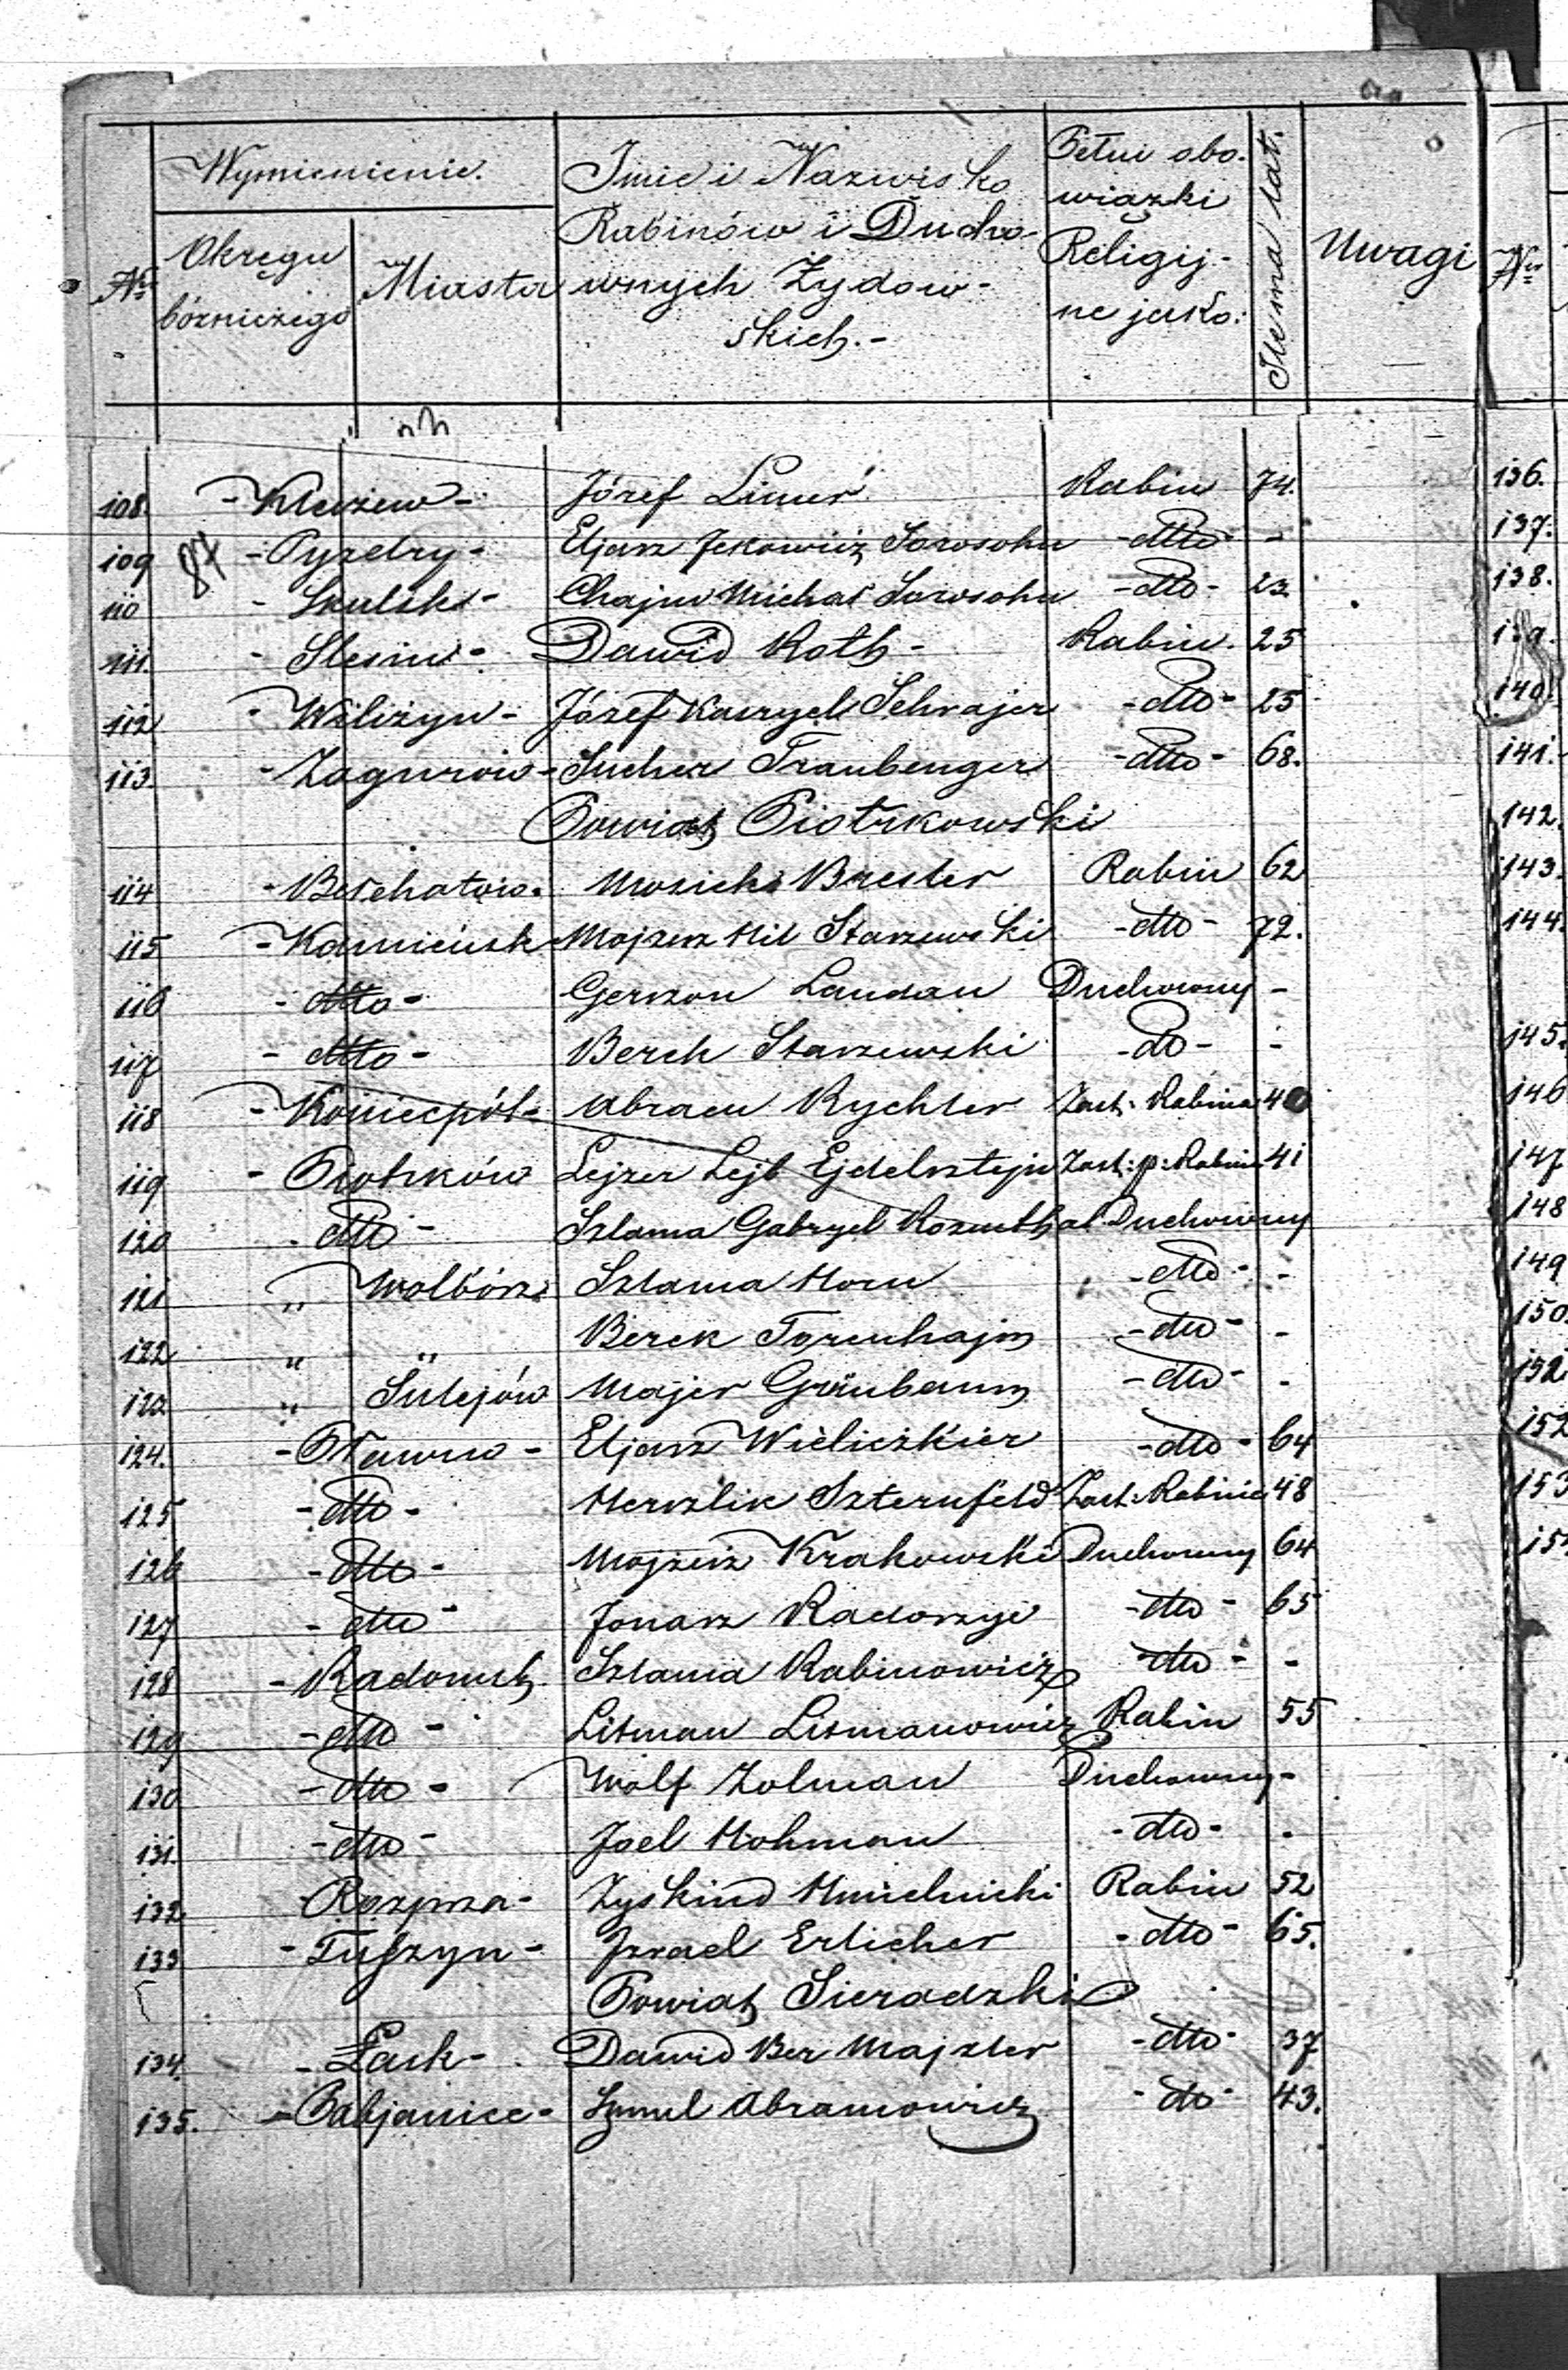 Wymienienie.
No
Okręgu bóżniczego
Miasta
Imie i Nazwisko Rabinów i Duchownych Żydowskich.-
Pełni obowiązki Religijne jako:
Ile ma lat.
Uwagi
No
108. - Kleczew - Józef Limer Rabin 74.
109 87 - Pyzdry - Eljasz Jekowicz Sorosohn - dtto - -
110 - Skulsk - Chajm Michał Sorosohn - dtto - 23.
111. - Slesin - Dawid Roth - Rabin. 25
112 - Wilczyn - Józef Kasryel Schrajer - dtto - 25
113. - Zagurow - Sucher Traubenger - dtto - 68.
Powiat Piotrkowski
114 - Bełchatow - Mosiek Brester Rabin 62
115 - Kamieńsk - Mojzesz Hil Starzewski - dtto - 72.
116 - dtto - Gerszon Landau Duchowny -
117 - dtto - Berek Starzewski - do - -
118 - Koniecpól - Abram Rychter Zast: Rabina 40
119 - Piotrków Lejzer Lejb Ejdelsztejn Zast: p: Rabina 41
120 - dtto - Szlama Gabryel Rozenthal Duchowny
121 " Wolbórz Szlama Horn - dtto - -
122 " " Berek Torenhajm - dtto - -
123 " Sulejów Majer Grünbaum - dtto - -
124. - Pławno - Eljasz Wieliczkier - dtto - 64
125 - dtto - Herszlik Szternfeld Zast: Rabina 48
126 - dtto - Mojzesz Krakowski Duchowny 64
127 - dtto - Jonasz Radoszyc - dtto - 65
128 - Radomsk Szlama Rabinowicz - dtto - -
129 - dtto - Litman Litmanowicz Rabin 55
130 - dtto - Wolf Zolman Duchowny -
131. - dtto - Joel Hohman - dtto - -
132 Rozprza - Zyskind Hmielnicki Rabin 52
133 - Tuszyn - Izrael Erlicher - dtto - 65.
Powiat Sieradzki
134. - Łask - Dawid Ber Majzler - dtto - 37
135. - Pabjanice - Szmul Abramowicz - do - 43.
136.
137.
138.
140
141.
142.
143.
144.
145.
146
147
148
149
150.
151
152
153